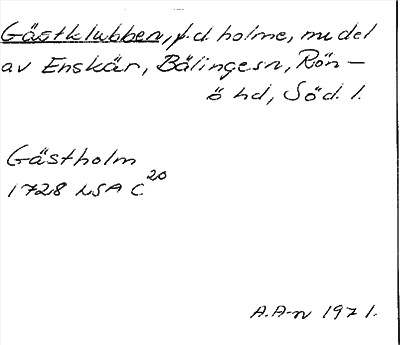 Gästklubben, f.d. holme, nu del
av Enskär, Bälinge sn, Rön-
ö hd, Söd. l.
Gästholm
1728 LSA C20
A.A-n 1971.